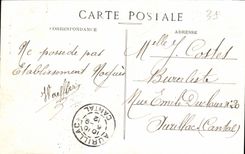 CARTE POSTALE
38
CORRESPONDANCE
ADRESSE
Ne possède pas
Etablissement
Melle J. Costes
Buraliste
Rue Emile Duclaux
Aurillac (Cantal)
AURILLAC
CANTAL